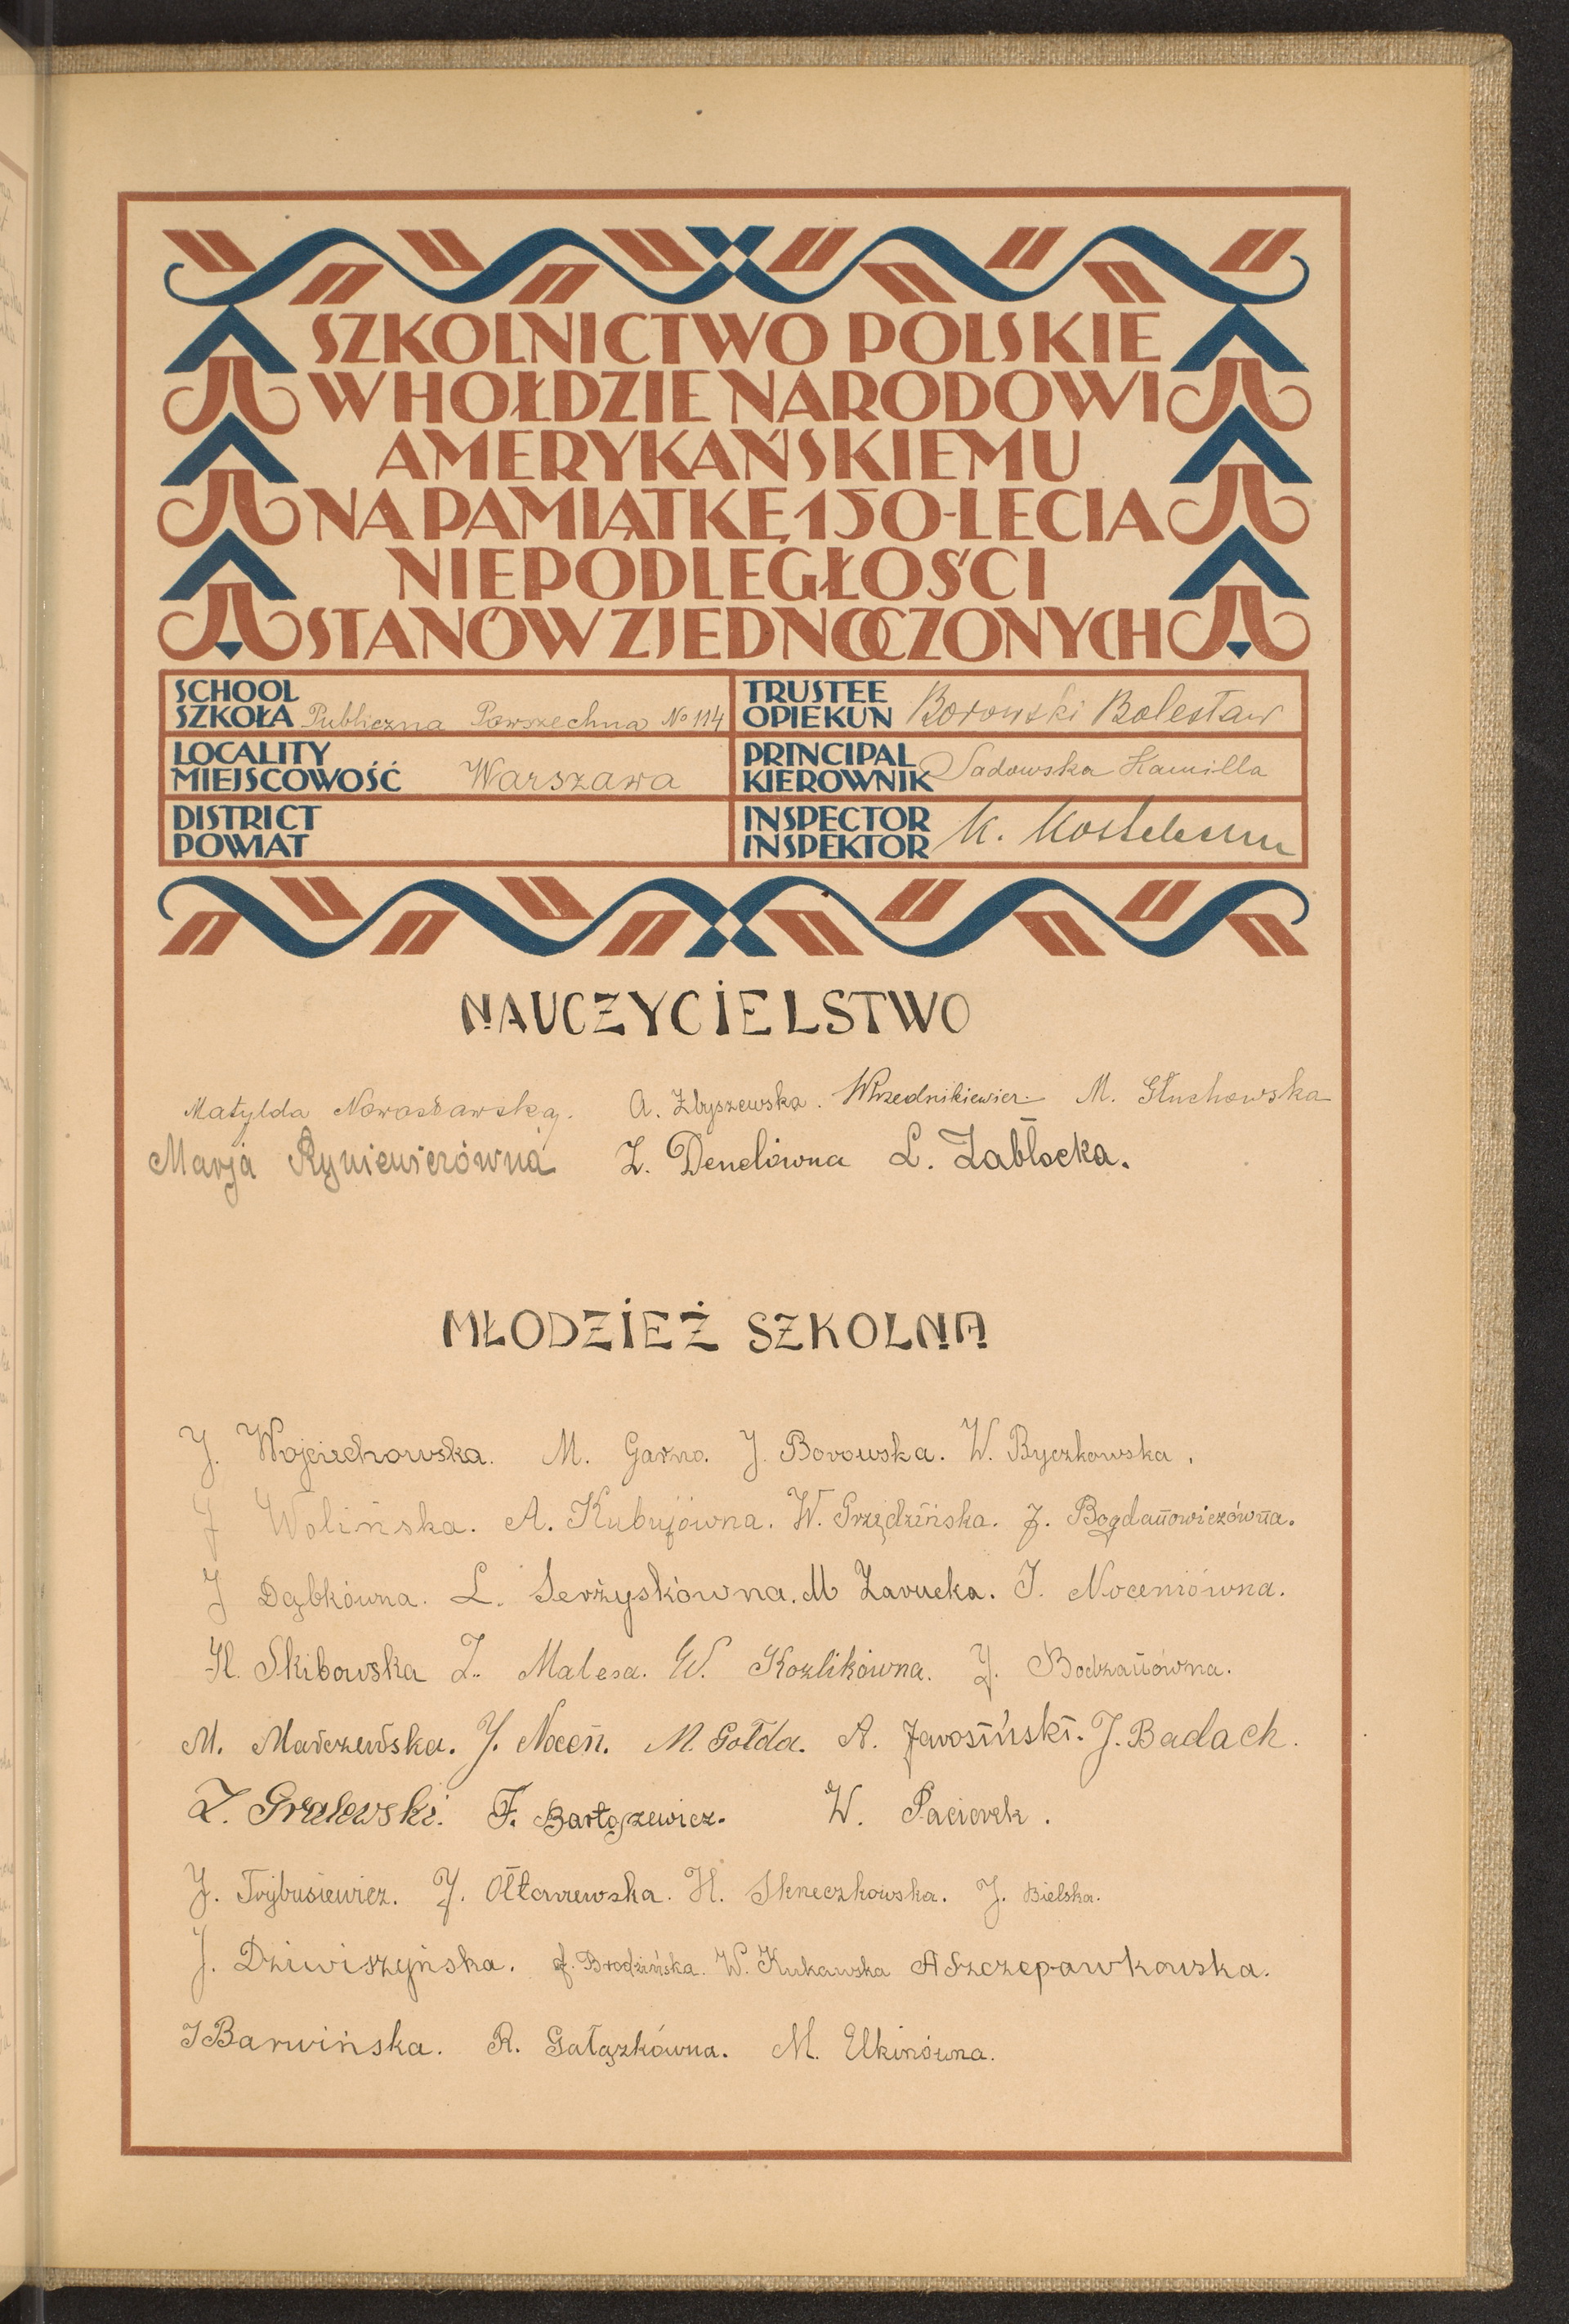 SZKOLNICTWO POLSKIE
W HOŁDZIE NARODOWI
AMERYKAŃSKIEMU
NA PAMIĄTKĘ 150-LECIA
NIEPODLEGŁOŚCI
STANÓW ZJEDNOCZONYCH
SCHOOL
SZKOŁA Publiczna Powszechna No 114
TRUSTEE
OPIEKUN Borowski Bolesław
LOCALITY
MIEJSCOWOŚĆ Warszawa
PRINCIPAL
KIEROWNIK Sadowska Kamilla
DISTRICT
POWIAT
INSPECTOR
INSPEKTOR K.
NAUCZYCIELSTWO
Matylda A. Zbyszewska. M. Głuchowska
Marja Ryniewiczówna Z. L. Zabłocka.
MŁODZIEŻ SZKOLNA
J. Wojciechowska. M. Garno. J. Borowska. W. Byczkowska.
J Wolińska. A. Kubujówna. W. Grzędzińska. J. Bogdanowiczówna.
J Dąbkówna. L. Serżyskówna. M Zarucka. J. Noceniówna.
H. Skibowska Z. Malesa. W. Kozlikówna. J. Bodzanówna.
M. Marczewska. J. Noceń. M. Gołda. A. Jarosiński. J. Badach.
Z. Gralewski. F. Bartoszewicz. W. Paciorek.
J. Trybusiewicz. J. Ołtarzewska. H. Skneczkowska. J. Bielska.
J. Dziwiszyńska. J. Brodzińska. W. Kukawska A Szczepawkowska.
J Barwińska. R. Gałązkówna. M. Elkinówna.